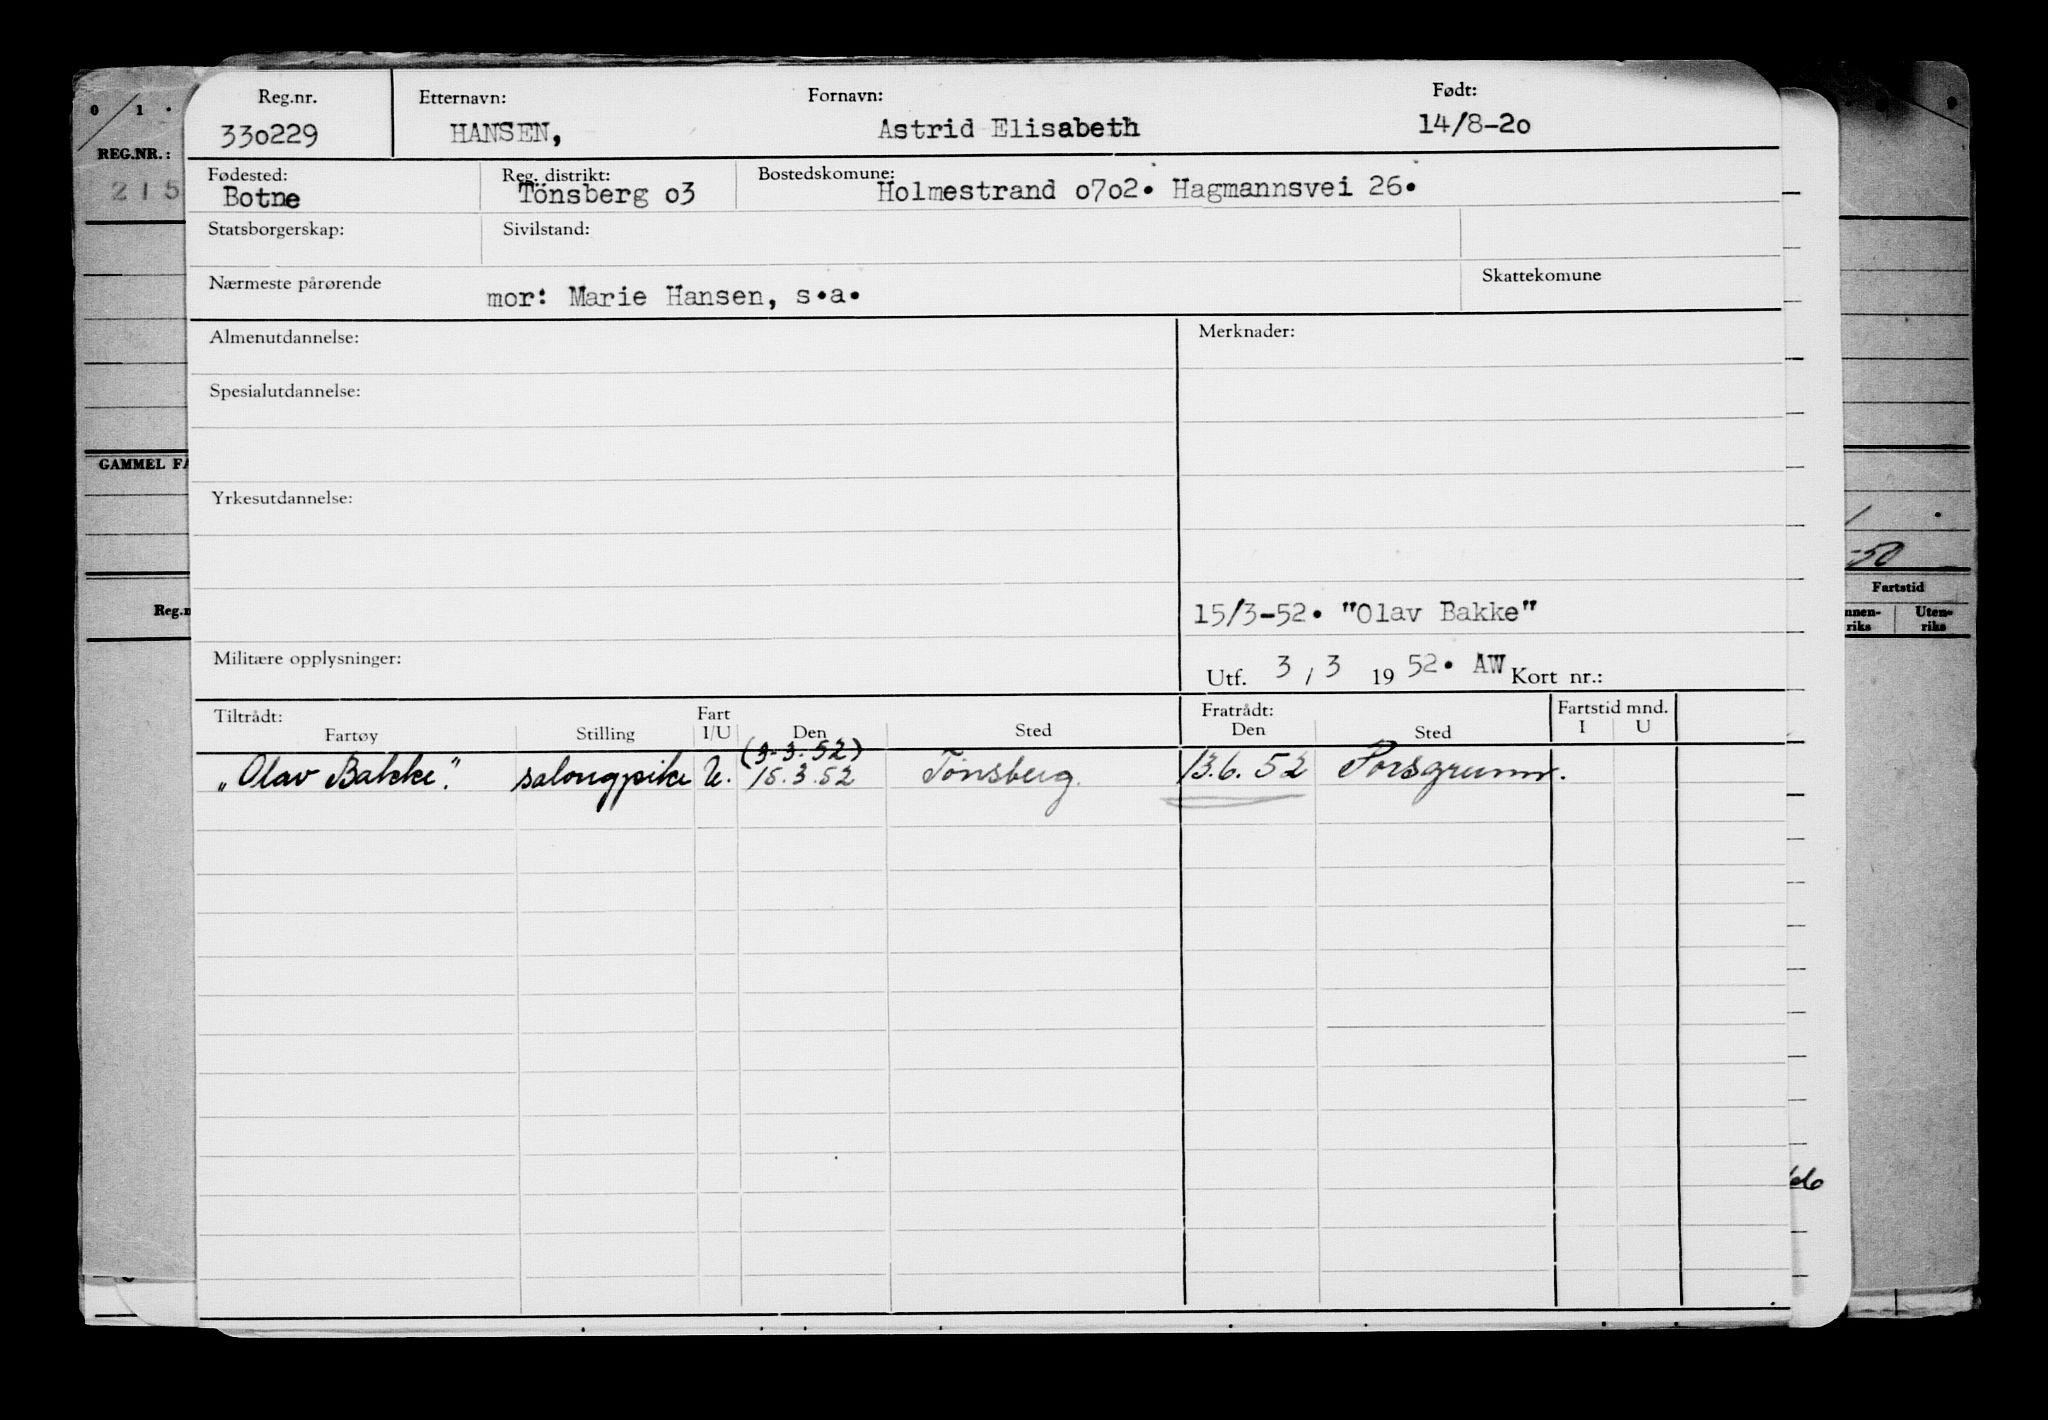 0/1.
REG.NR.:
215
GAMMEL FA
Reg.n
Reg.nr. Etternavn: Fornavn: Født:
330229 HANSEN, Astrid Elisabeth 14/8-20
Fødested: Reg. distrikt: Bostedskomune:
Botne Tönsberg 03 Holmestrand 0702. Hagmannsvei 26.
Statsborgerskap: Sivilstand:
Nærmeste pårørende Skattekomune
mor: Marie Hansen, s.a.
Almenutdannelse: Merknader:
Spesialutdannelse:
Yrkesutdannelse:
15/3-52. "Olav Bakke"
Militære opplysninger:
Utf. 3 / 3 19 52. AW Kort nr.:
Tiltrådt: Fart Fratrådt: Fartstid mnd.
Fartøy Stilling I/U Den Sted Den Sted I U
(3-3.52)
„Olav Bakke". salongpike U. 15.3.52 Tönsberg. 13.6.52 Porsgrunn.
-50
Fartstid
nnen- Uten-
riks riks